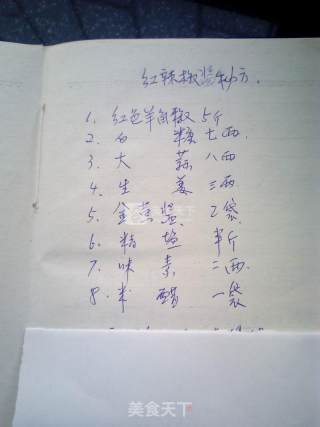 红辣椒酱秘方.
1. 红色羊角椒 5斤
2. 白 糖 七两
3. 大 蒜 八两
4. 生 姜 三两
5. 黄酱 2袋
6. 精 盐 半斤
7. 味 素 二两
8. 米 醋 一袋
美食天下